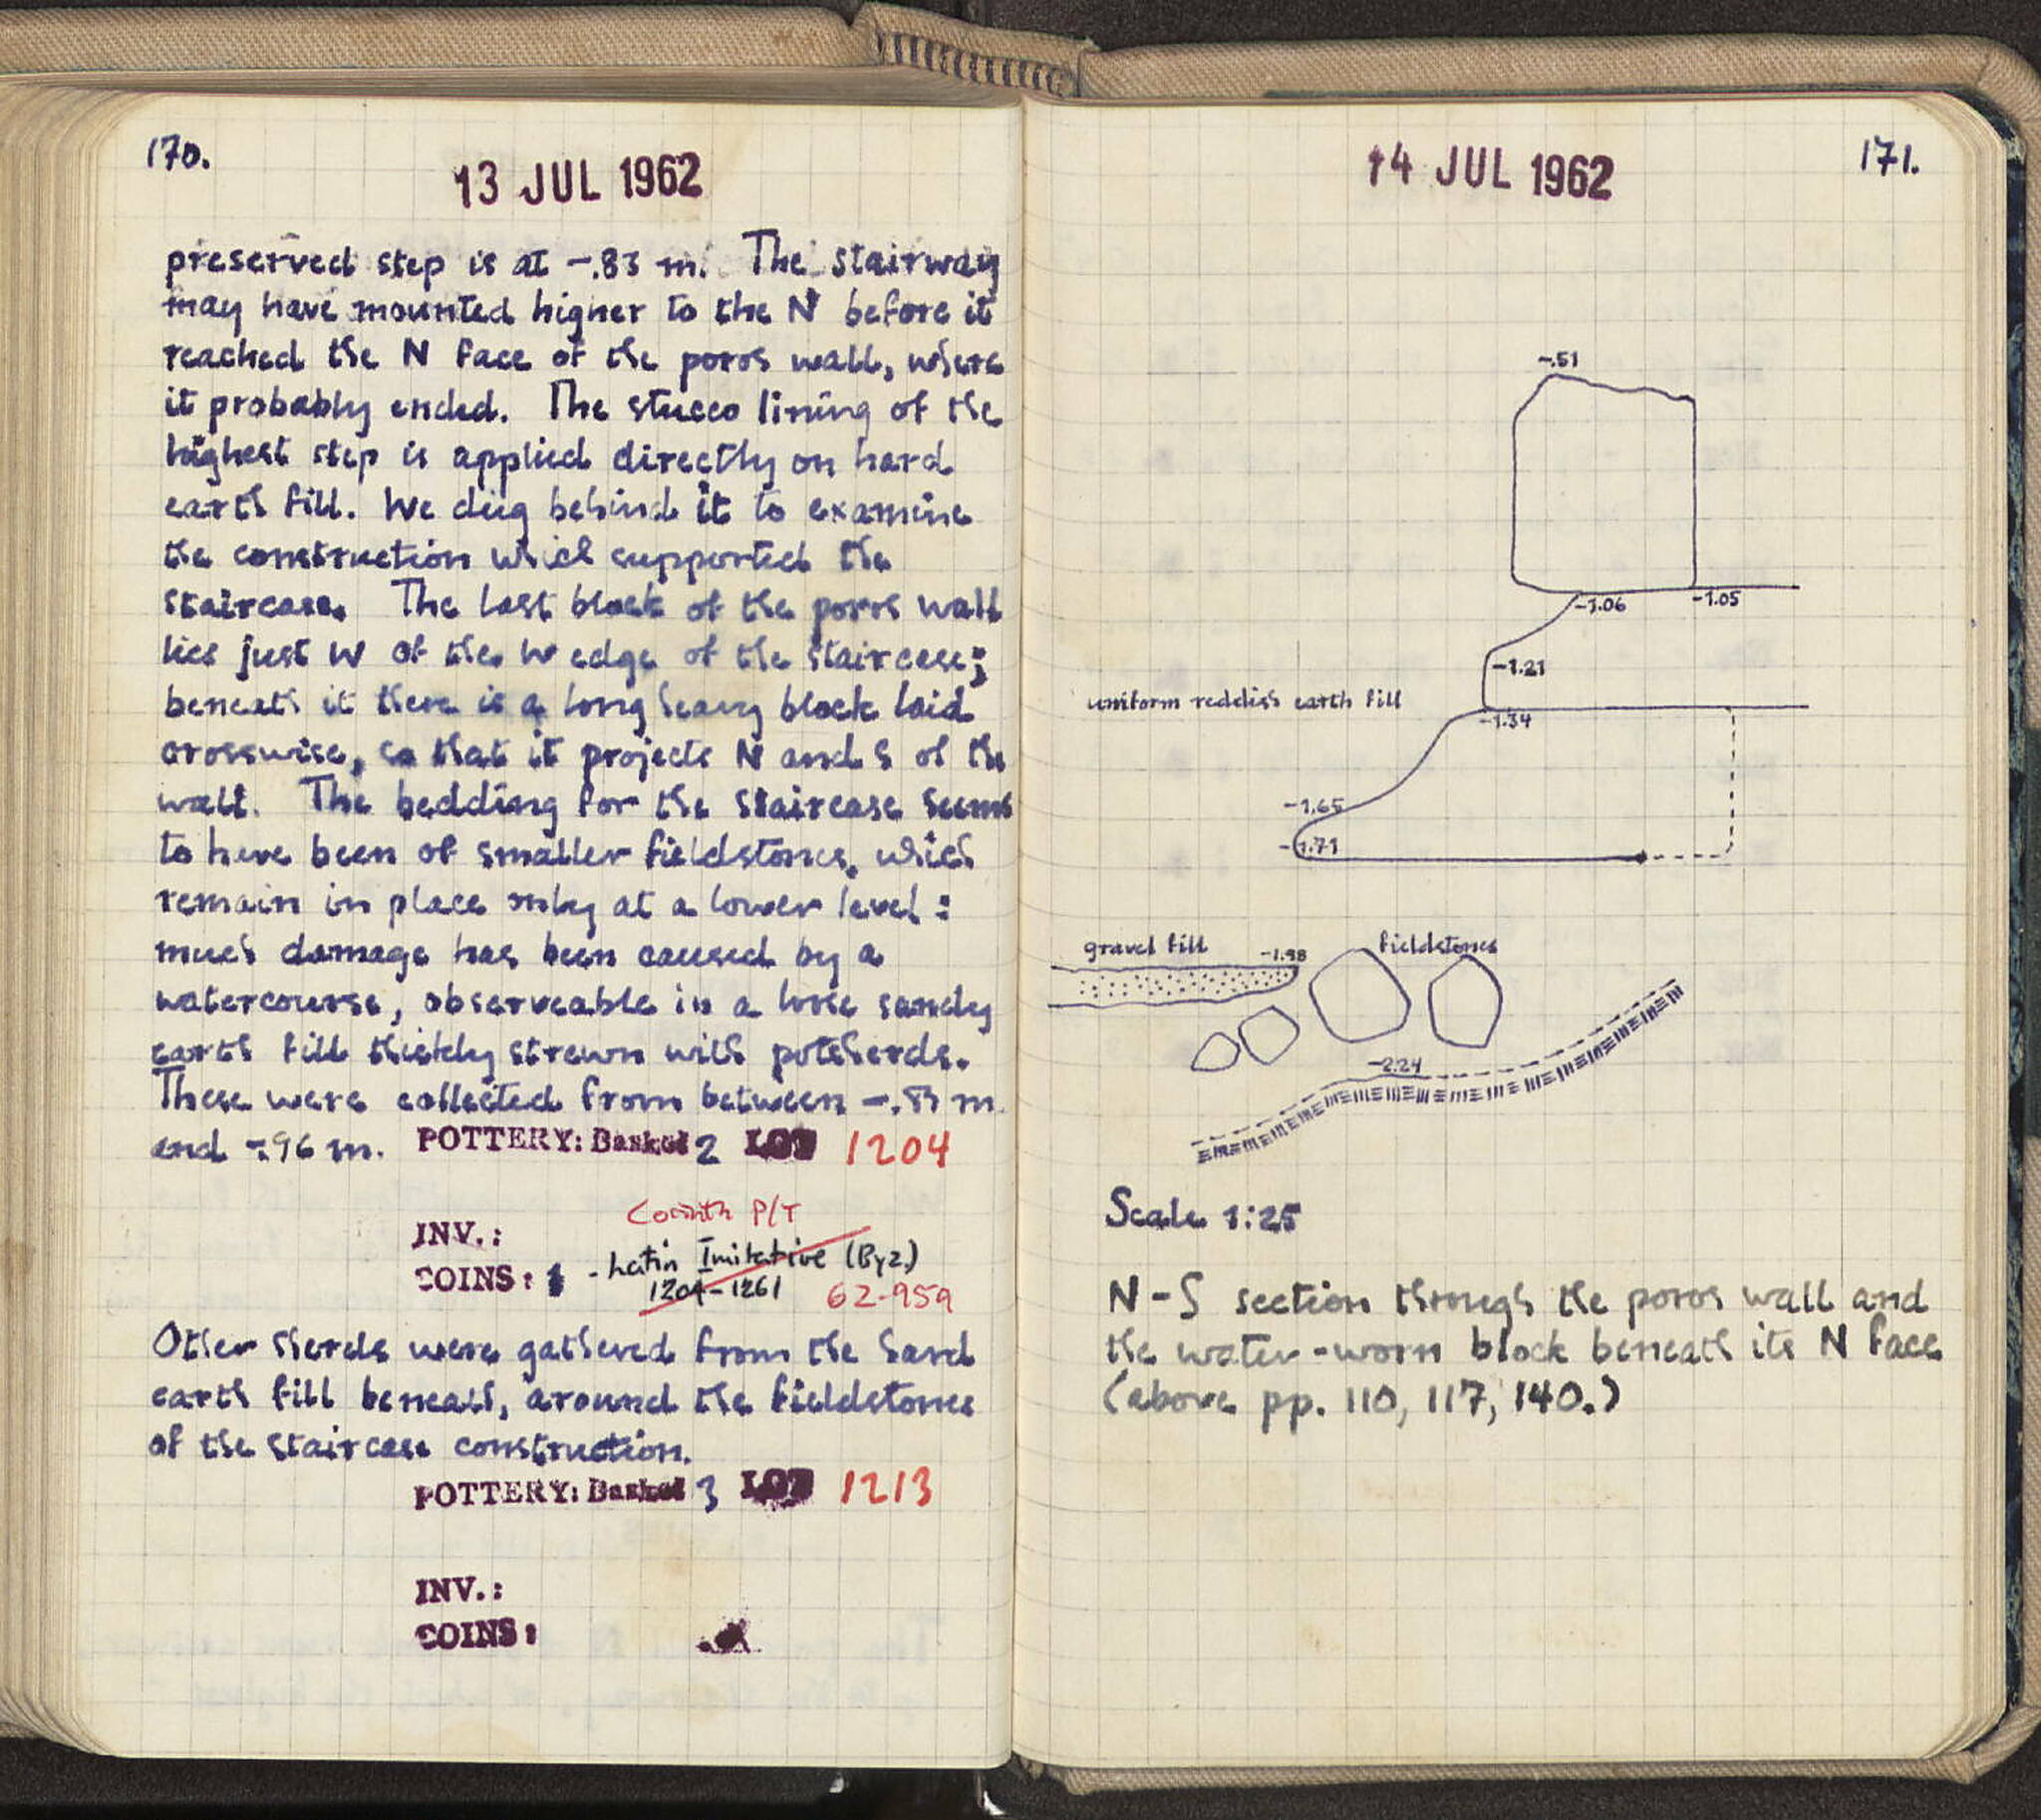 170.
13 JUL 1962
preserved step is at -.83 m. The stairway
may have mounted higher to the N before it
reached the N face of the poros wall, where
it probably ended. The stucco lining of the
highest step is applied directly on hard
earth fill. We dug behind it to examine
the construction which supported the
staircase. The last block of the poros wall
lies just W of the W edge of the staircase;
beneath it there is a long heavy block laid
crosswise, so that it projects N and S of the
wall. The bedding for the staircase seems
to have been of smaller fieldstones, which
remain in place only at a lower level:
much damage has been caused by a
watercourse, observeable in a loose sandy
earth fill thickly strewn with potsherds.
These were collected from between -.83 m
and -.96 m. POTTERY: Basket 2 LOT 1204
Corinth P/T
INV.:
COINS: 1 - Latin Imitative (Byz.)
1204-1261 62-959
Other sherds were gathered from the hard
earth fill beneath, around the fieldstones
of the staircase construction.
POTTERY: Basket 3 LOT 1213
INV.:
COINS:
14 JUL 1962
171.
-.51
-1.06 -1.05
-1.21
uniform reddish earth fill
-1.34
-1.65
-1.71
gravel fill -1.98 fieldstones
-2.24
Scale 1:25
N-S section through the poros wall and
the water-worn block beneath its N face
(above pp. 110, 117, 140.)